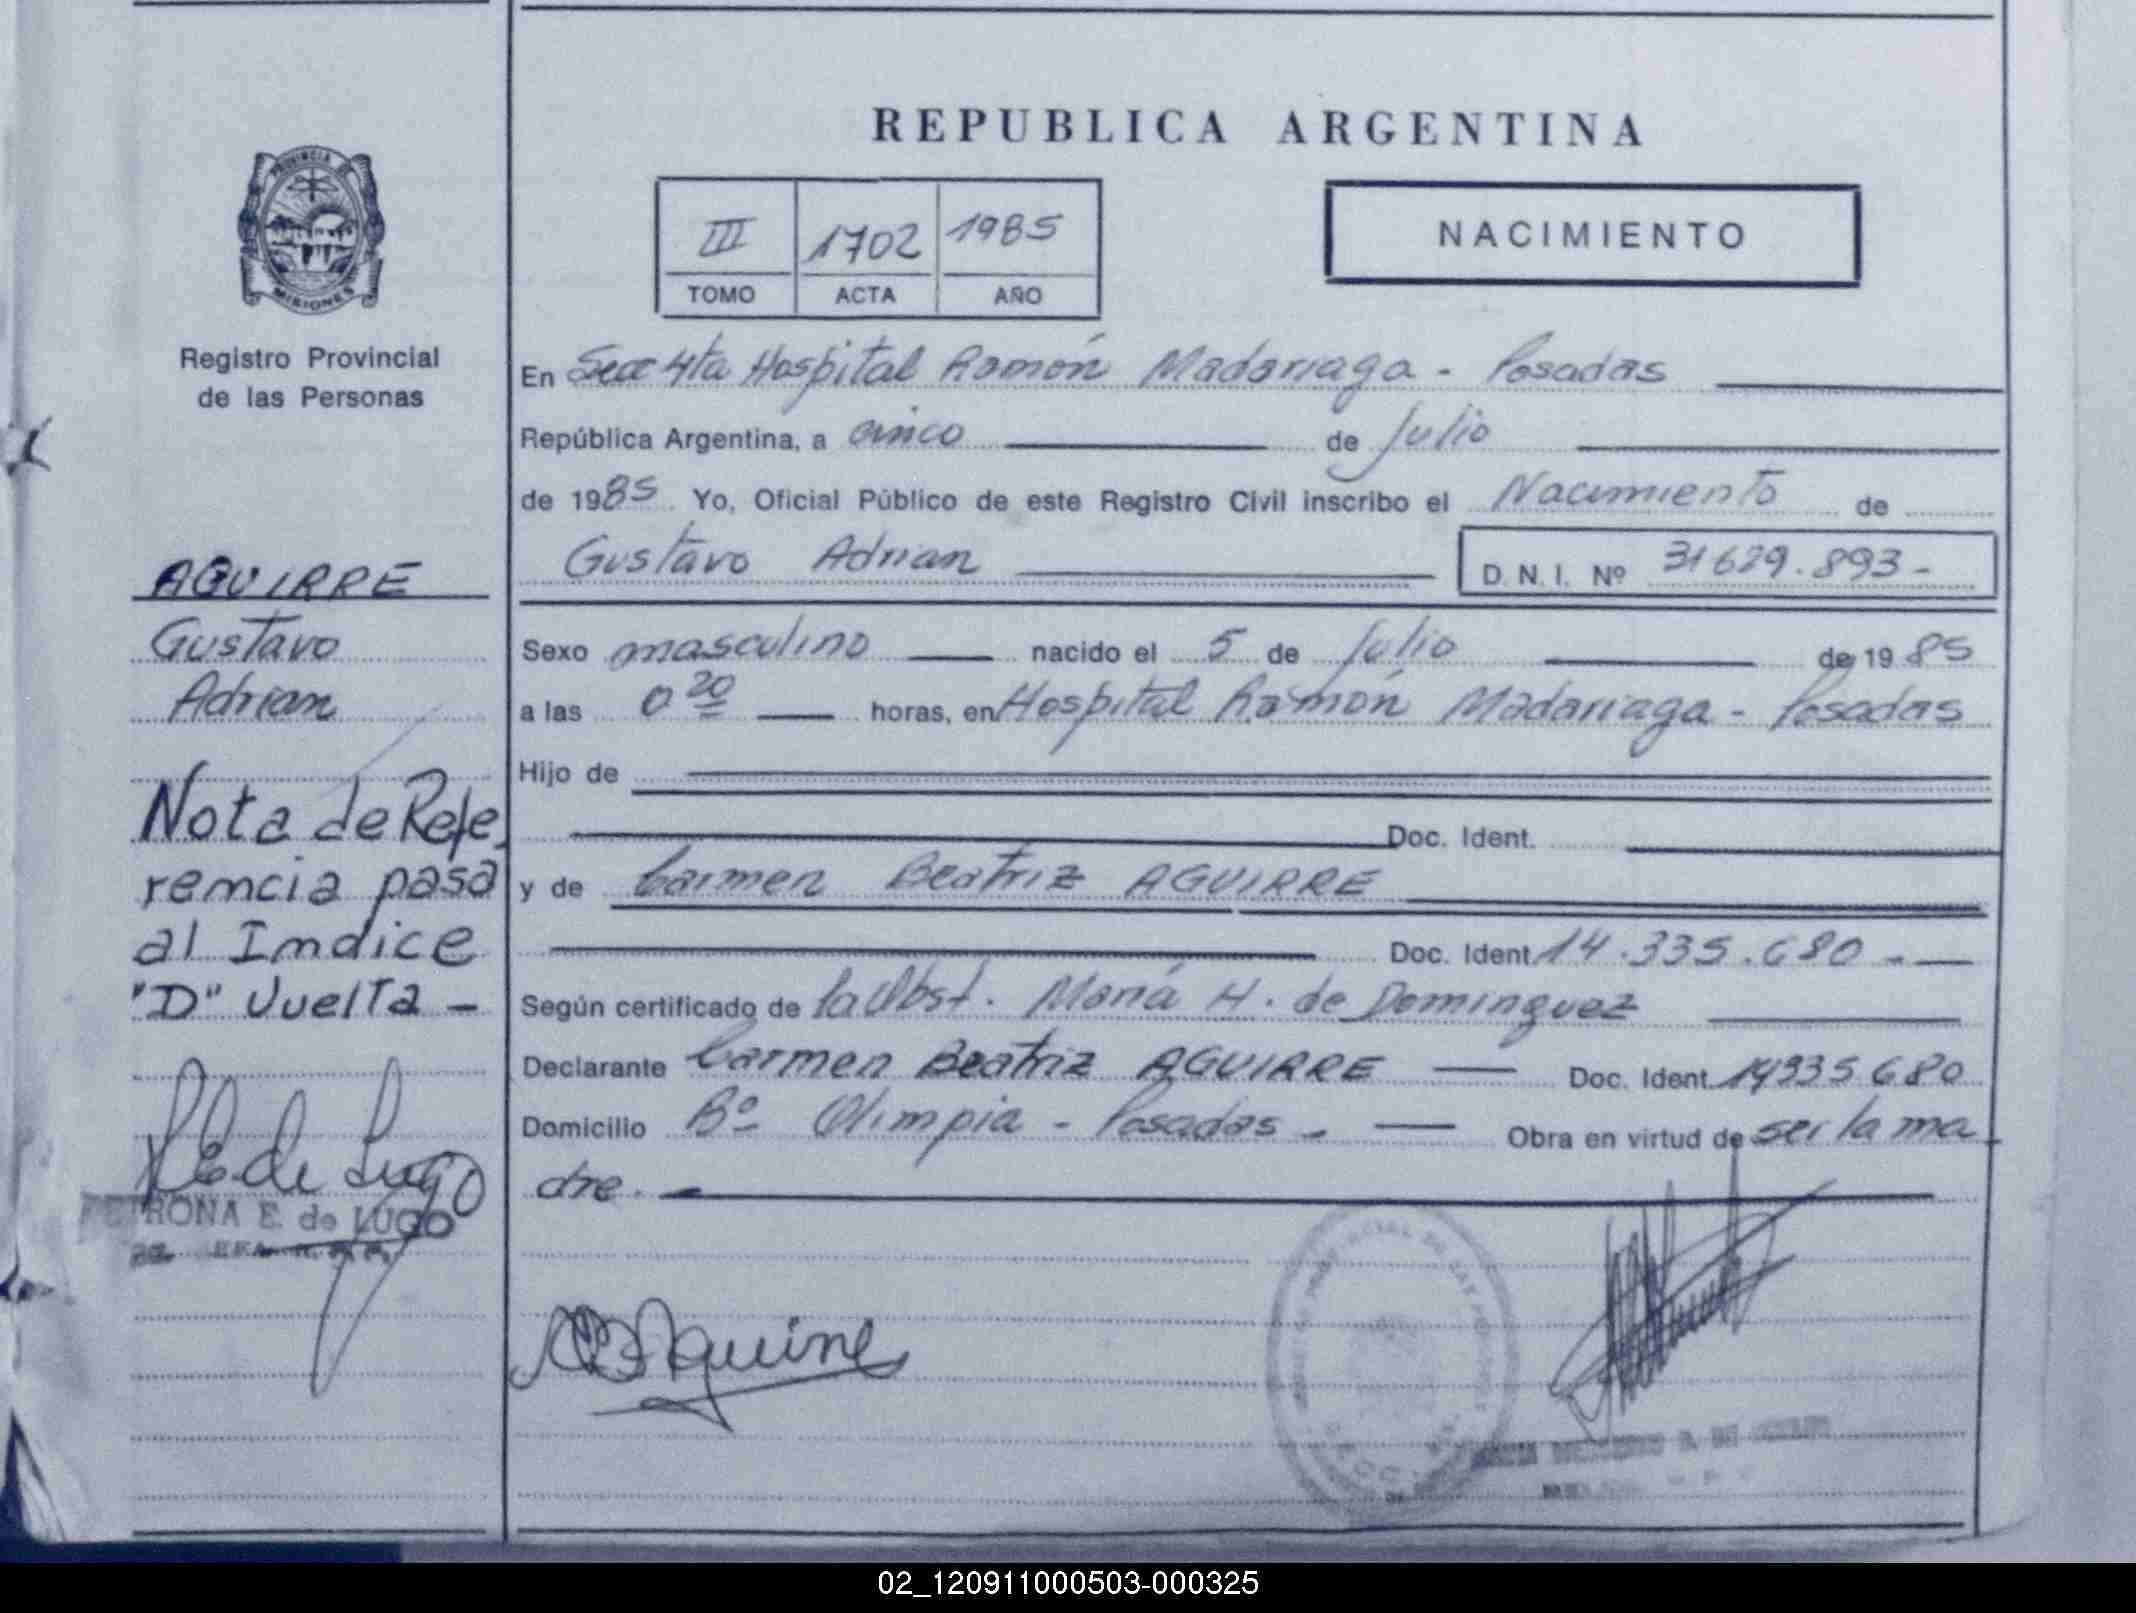 REPUBLICA ARGENTINA
III 1702 1985
TOMO ACTA AÑO
NACIMIENTO
PROVINCIA DE
MISIONES
Registro Provincial
de las Personas
AGUIRRE
Gustavo
Adrian
Nota de Refe
rencia pasa
al Indice
"D" Vuelta -
de Lugo
PETRONA E. de LUGO
En Secc 4ta Hospital Ramón Madariaga - Posadas
República Argentina, a cinco de Julio
de 1985. Yo, Oficial Público de este Registro Civil inscribo el Nacimiento de
Gustavo Adrian D.N.I. Nº 31629.893-
Sexo masculino nacido el 5 de Julio de 1985
a las 0 20 horas, en Hospital Ramón Madariaga - Posadas
Hijo de
Doc. Ident.
y de Carmen Beatriz AGUIRRE
Doc. Ident 14.335.680 -
Según certificado de la Obst. María H. de Dominguez
Declarante Carmen Beatriz AGUIRRE Doc. Ident 14335680
Domicilio Bº Olimpia - Posadas - Obra en virtud de ser la ma
dre.
Aguirre
02_120911000503-000325